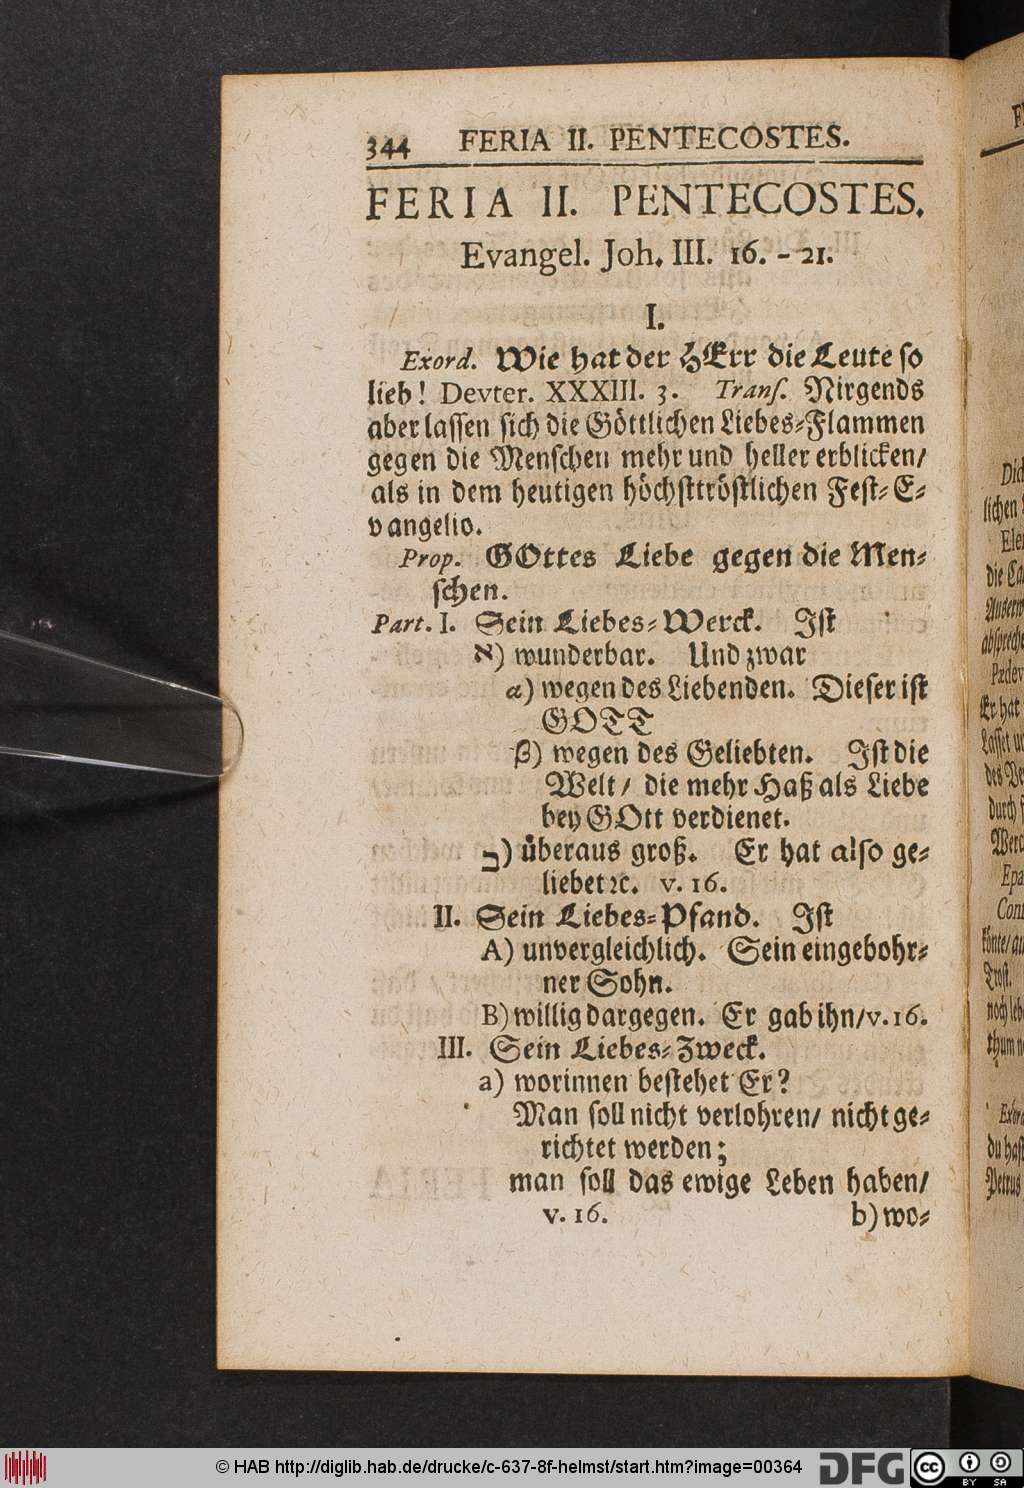 344 FERIA II. PENTECOSTES.
FERIA II. PENTECOSTES.
Evangel. Joh. III. 16. - 21.
I.
Exord. Wie hat der HErr die Leute so
lieb! Devter. XXXIII. 3. Trans. Nirgends
aber lassen sich die Göttlichen Liebes-Flammen
gegen die Menschen mehr und heller erblicken/
als in dem heutigen höchsttröstlichen Fest-E-
vangelio.
Prop. GOttes Liebe gegen die Men-
schen.
Part. I. Sein Liebes-Werck. Ist
א) wunderbar. Und zwar
α) wegen des Liebenden. Dieser ist
GOTT
β) wegen des Geliebten. Ist die
Welt/ die mehr Haß als Liebe
bey GOtt verdienet.
ב) überaus groß. Er hat also ge-
liebet ꝛc. v. 16.
II. Sein Liebes-Pfand. Ist
A) unvergleichlich. Sein eingebohr-
ner Sohn.
B) willig dargegen. Er gab ihn/ v. 16.
III. Sein Liebes-Zweck.
a) worinnen bestehet Er?
Man soll nicht verlohren/ nicht ge-
richtet werden;
man soll das ewige Leben haben/
v. 16. b) wo-
Elen
Er hat
Petrus
© HAB http://diglib.hab.de/drucke/c-637-8f-helmst/start.htm?image=00364
DFG
cc BY SA